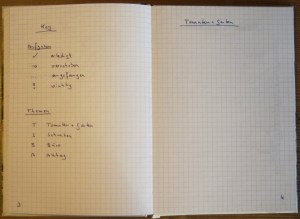 Key
Aufgaben
✓ erledigt
→ verschoben
... angefangen
! wichtig
Themen
T Tomaten + Garten
S Schreiben
B Büro
A Alltag
2
Tomaten + Garten